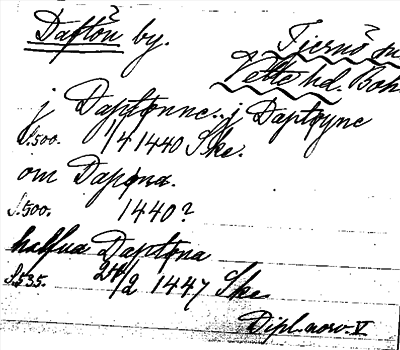 Daftön by. Tjernö sn
Vette hd. Boh
j Daptønne.. j Daptøyne
S.500. 1/4 1440 Ske.
om Dapøna.
S.500. 1440?
halfua Daptøna
S.535. 24/2 1447 Ske
Dipl. norv. V